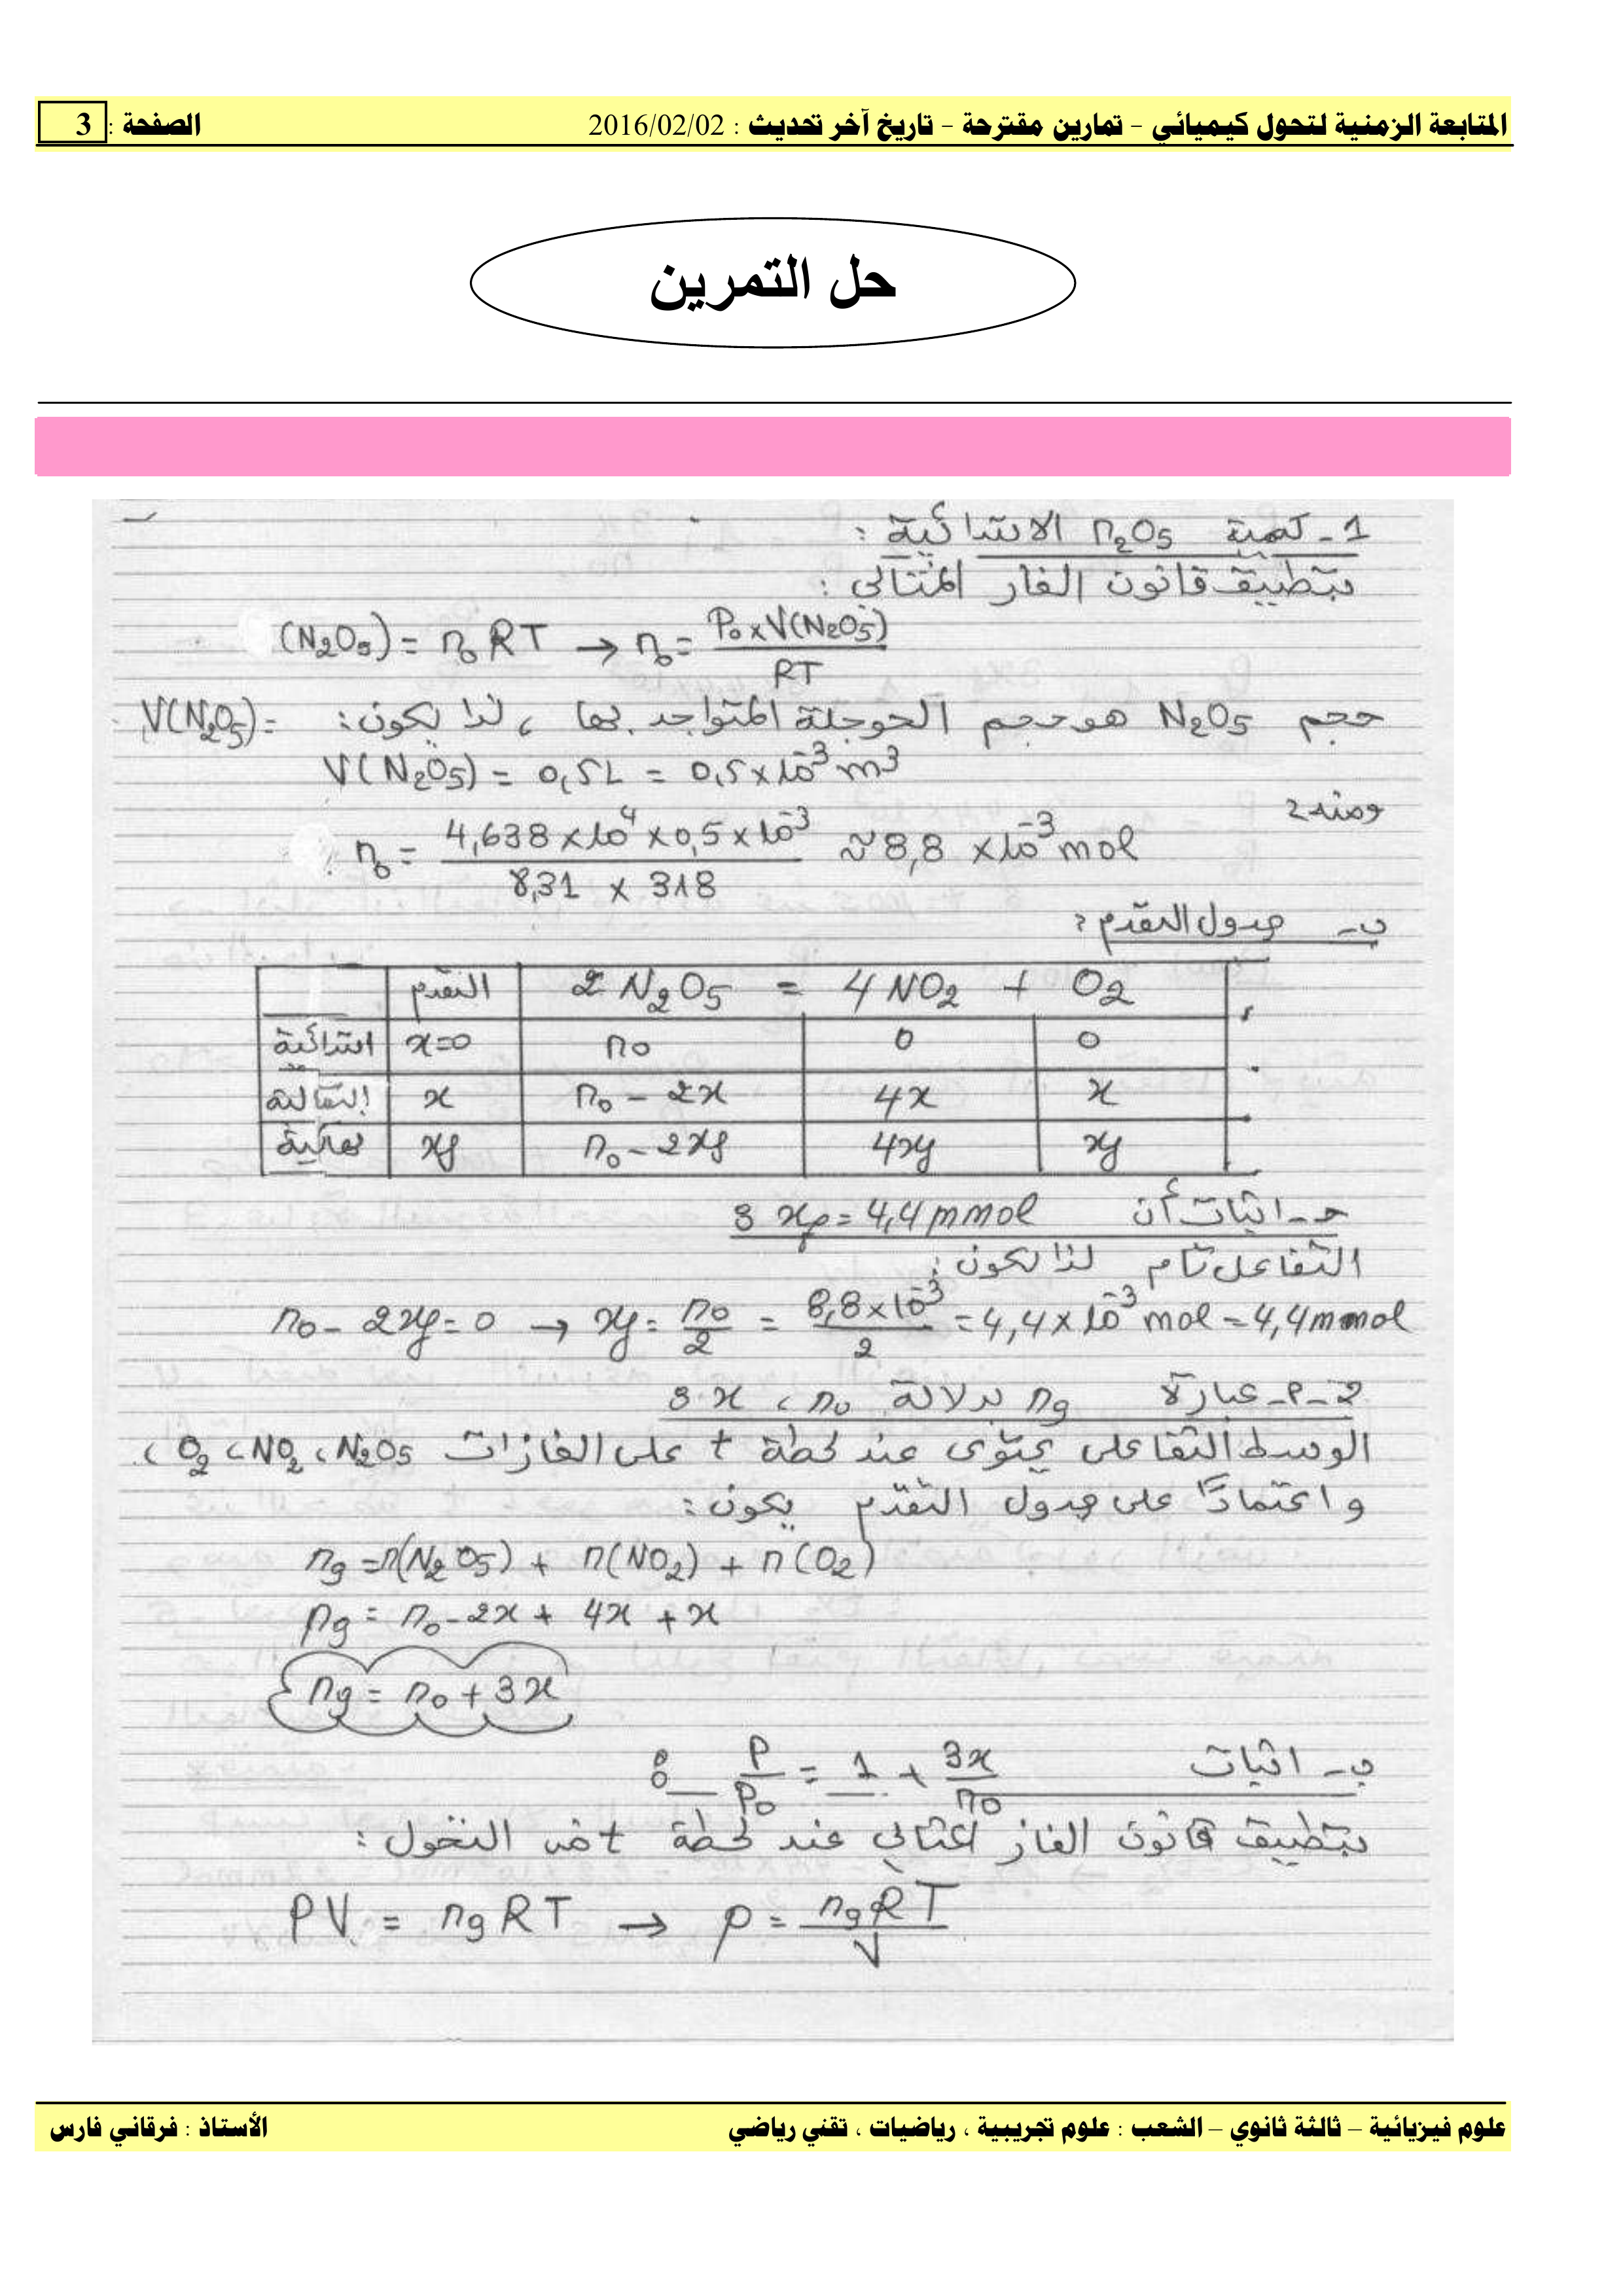 المتابعة الزمنية لتحول كيميائي – تمارين مقترحة – تاريخ آخر تحديث : 2016/02/02 الصفحة : 3
حل التمرين
1- كمية n₂O₅ الابتدائية :
بتطبيق قانون الغاز المثالي :
(N₂O₅) = n₀ RT → n₀ = P₀ × V(N₂O₅) / RT
حجم N₂O₅ هو حجم الحوجلة المتواجد بها ، لذا يكون : V(N₂O₅) =
V(N₂O₅) = 0,5L = 0,5 × 10⁻³ m³
ومنه :
n₀ = 4,638 × 10⁴ × 0,5 × 10⁻³ / 8,31 × 318 ≈ 8,8 × 10⁻³ mol
ب- جدول التقدم :
التقدم 2 N₂O₅ = 4 NO₂ + O₂
ابتدائية x=0 n₀ 0 0
انتقالية x n₀ – 2x 4x x
نهائية xf n₀ – 2xf 4xf xf
حـ- اثبات أن xf = 4,4 mmol :
التفاعل تام لذا يكون :
n₀ – 2xf = 0 → xf = n₀ / 2 = 8,8 × 10⁻³ / 2 = 4,4 × 10⁻³ mol = 4,4 mmol
2-أ- عبارة ng بدلالة n₀ ، x :
الوسط التفاعلي يحتوى عند لحظة t على الغازات N₂O₅ ، NO₂ ، O₂ ،
واعتمادًا على جدول التقدم يكون :
ng = n(N₂O₅) + n(NO₂) + n(O₂)
ng = n₀ – 2x + 4x + x
ng = n₀ + 3x
ب- اثبات P / P₀ = 1 + 3x / n₀ :
بتطبيق قانون الغاز المثالي عند لحظة t من التحول :
PV = ng RT → P = ng RT / V
علوم فيزيائية – ثالثة ثانوي – الشعب : علوم تجريبية ، رياضيات ، تقني رياضي الأستاذ : فرقاني فارس